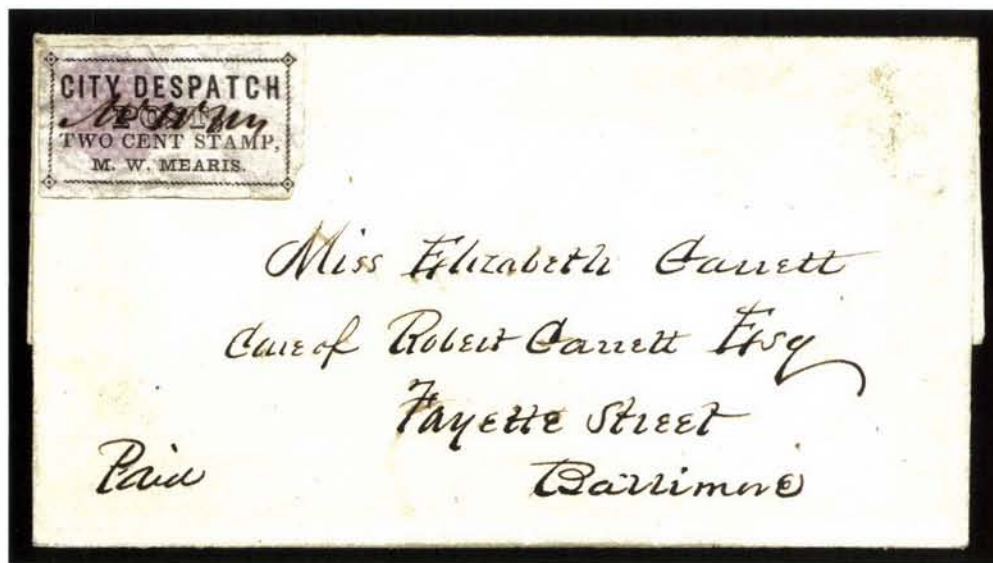 CITY DESPATCH
POST
TWO CENT STAMP,
M. W. MEARIS.
Miss Elizabeth Garrett
Care of Robert Garrett Esq
Fayette Street
Baltimore
Paid